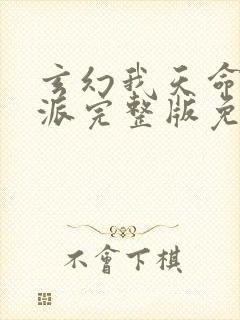 玄幻我天命
派完整版免
不會下棋